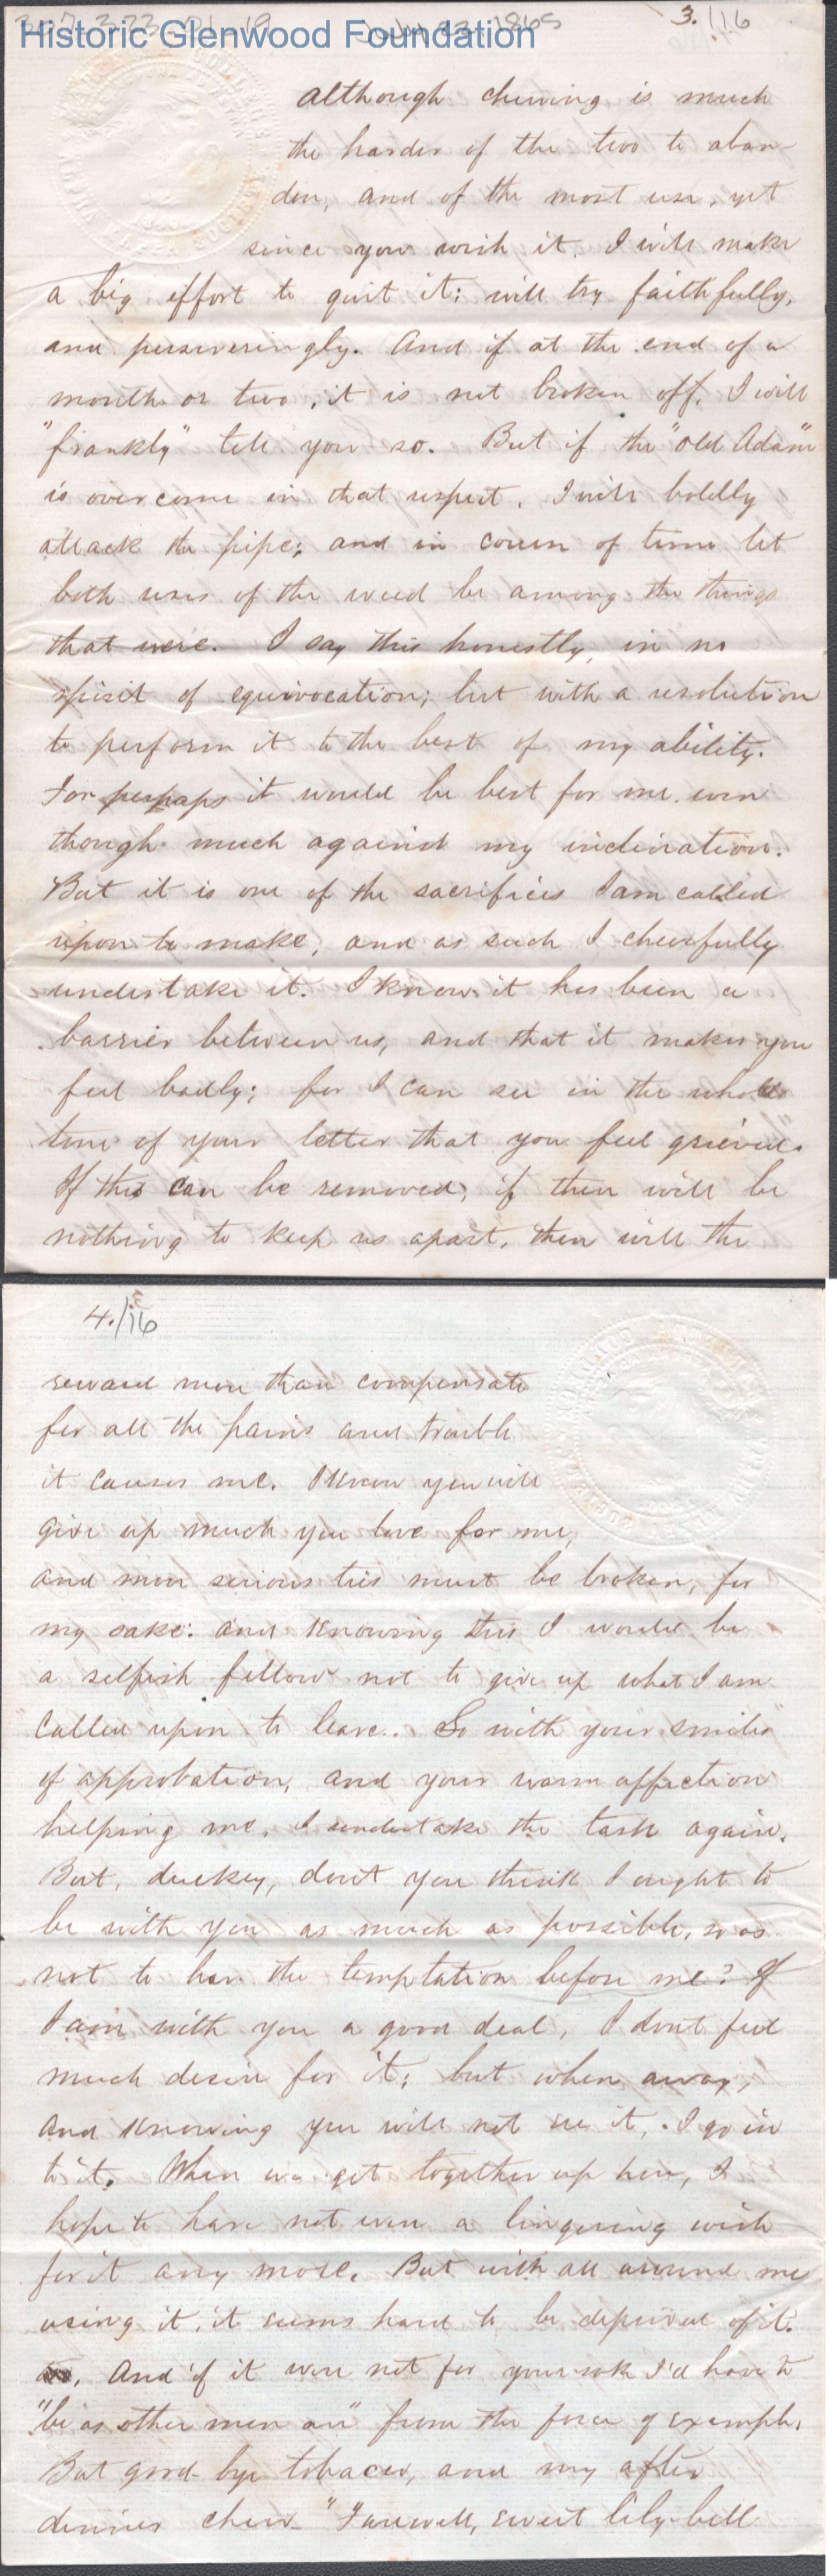 Historic Glenwood Foundation
3./16
Although chewing is much
the harder of the two to aban-
don, and of the most use, yet
since you wish it, I will make
a big effort to quit it; will try faithfully,
and perseveringly. And if at the end of a
month or two, it is not broken off, I will
"frankly" tell you so. But if the "old Adam"
is overcome in that respect, I will boldly
attack the pipe; and in course of time let
both uses of the weed be among the things
that were. I say this honestly, in no
spirit of equivocation; but with a resolution
to perform it to the best of my ability.
For perhaps it would be best for me even
though much against my inclination.
But it is one of the sacrifices I am called
upon to make, and as such I cheerfully
undertake it. I know it has been a
barrier between us, and that it makes you
feel badly; for I can see in the whole
tone of your letter that you feel grieved.
If this can be removed, if then will be
nothing to keep us apart, then will the
4./16
reward more than compensate
for all the pains and trouble
it causes me. I know you will
give up much you love for me,
and more serious ties must be broken, for
my sake: and knowing this I would be
a selfish fellow not to give up what I am
called upon to leave. So with your smiles
of approbation, and your warm affection
helping me, I undertake the task again.
But, duckey, dont you think I ought to
be with you as much as possible, so as
not to have the temptation before me? If
I am with you a good deal, I dont feel
much desire for it; but when away,
and knowing you will not see it, I go in
to it. When we get together up here, I
hope to have not even a lingering wish
for it any more. But with all around me
using it, it seems hard to be deprived of it.
And if it were not for your sake I'd have to
"be as other men are" from the force of example.
But good-bye tobacco, and my after
dinner chew. "Farewell, sweet lily-bell